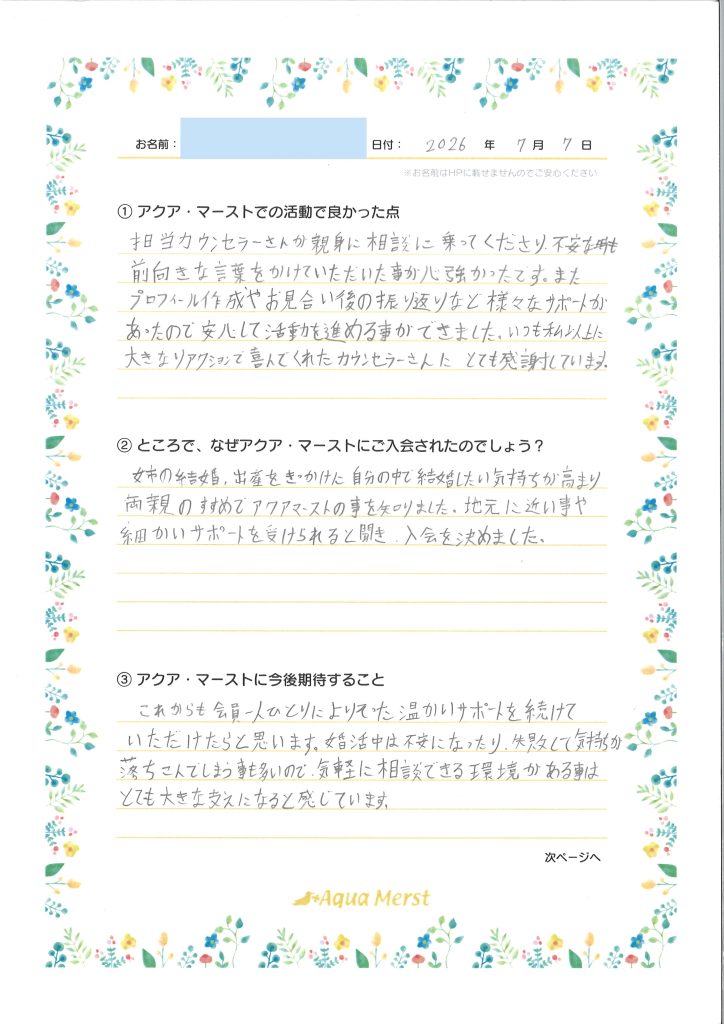 お名前：
日付： 2026 年 7 月 7 日
※お名前はHPに載せませんのでご安心ください
① アクア・マーストでの活動で良かった点
担当カウンセラーさんが親身に相談に乗ってくださり、不安な時も
前向きな言葉をかけていただいた事が心強かったです。また
プロフィール作成やお見合い後の振り返りなど様々なサポートが
あったので安心して活動を進める事ができました。いつも私以上に
大きなリアクションで喜んでくれたカウンセラーさんに とても感謝しています。
② ところで、なぜアクア・マーストにご入会されたのでしょう？
姉の結婚、出産をきっかけに自分の中で結婚したい気持ちが高まり
両親のすすめでアクアマーストの事を知りました。地元に近い事や
細かいサポートを受けられると聞き、入会を決めました。
③ アクア・マーストに今後期待すること
これからも会員一人ひとりによりそった温かいサポートを続けて
いただけたらと思います。婚活中は不安になったり、失敗して気持ちが
落ちこんでしまう事も多いので、気軽に相談できる環境がある事は
とても大きな支えになると感じています。
次ページへ
Aqua Merst